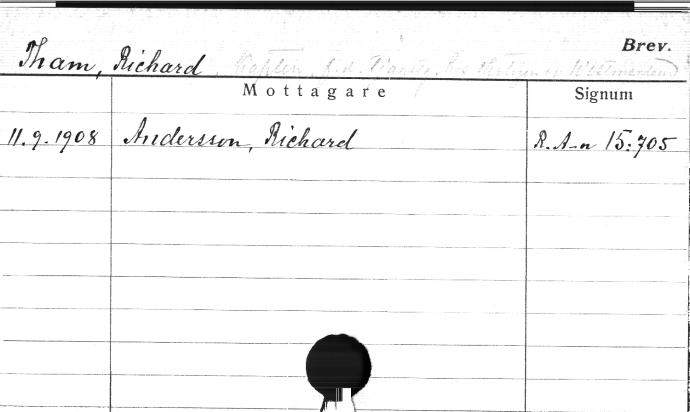 Brev.
Tham, Richard, Kapten, f.d.
Mottagare Signum
11.9.1908 Andersson, Richard R. A-n 15:705